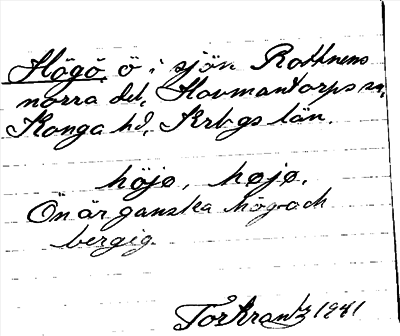 Högö, ö i sjön Rottnens
norra del, Hovmantorps sn,
Konga hd, Krbgs län.
höjø, højø.
Ön är ganska hög och
bergig.
Tor Krantz 1941